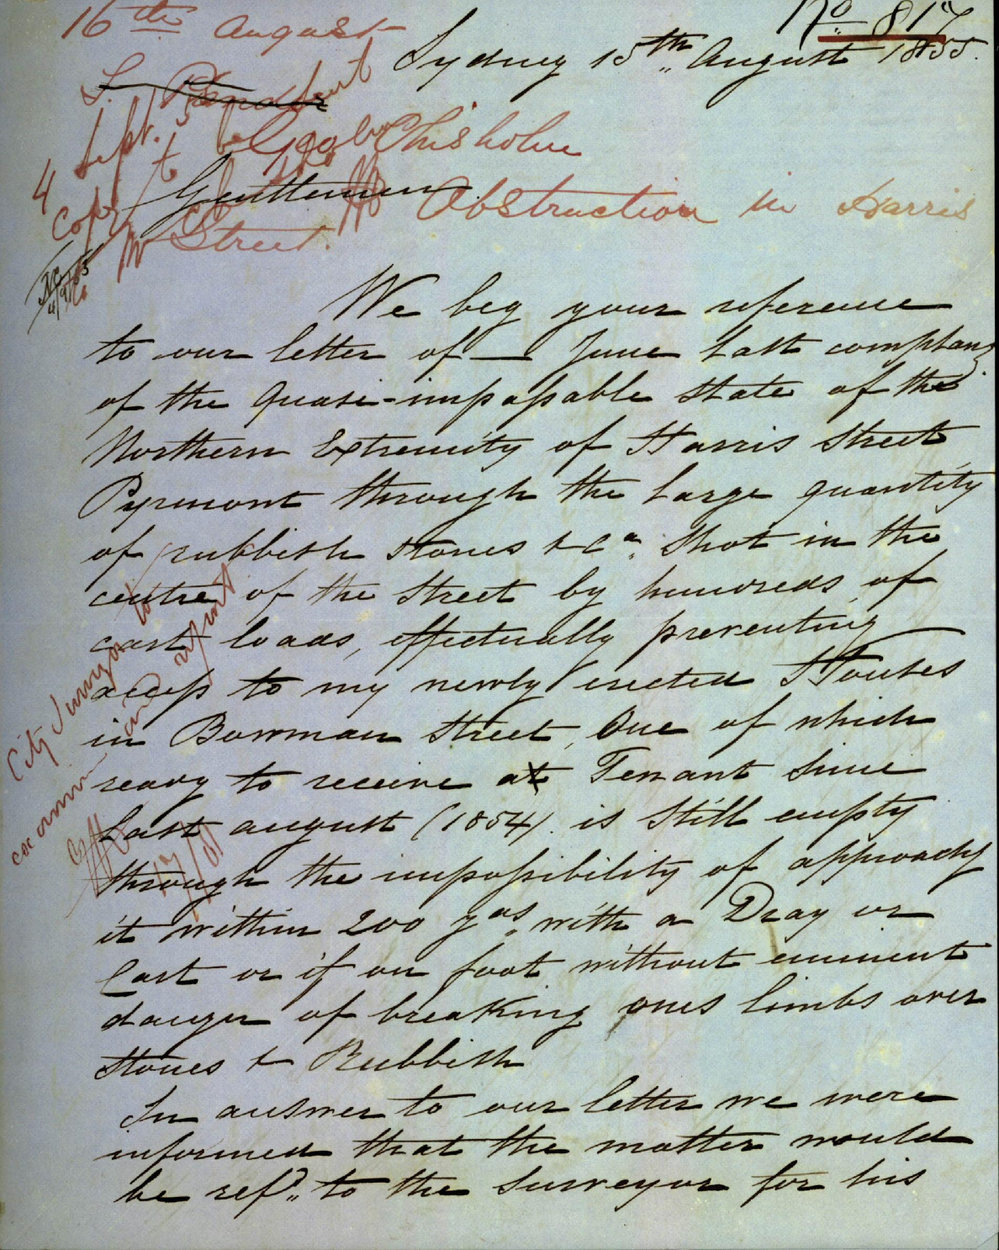 No 817
16th August
Sydney 15th August 1855.
Geo Chisholm
Gentlemen
Obstruction in Harris
Street.
4 Sept.
Copy to be sent
We beg your reference
to our letter of — June last complang
of the Quasi-impassable state of the
Northern Extremity of Harris Street
Pyrmont through the large quantity
of rubbish stones &ca. shot in the
centre of the Street by hundreds of
cart loads, effectually preventing
access to my newly erected Houses
in Bowman Street, One of which
ready to receive a Tenant since
Last August (1854) is still empty
through the impossibility of approachg
it within 200 yds. with a Dray or
Cart or if on foot without eminent
danger of breaking ones limbs over
stones & Rubbish
In answer to our letter we were
informed that the matter would
be refd. to the Surveyor for his
City Surveyor to
examine and report
17/8